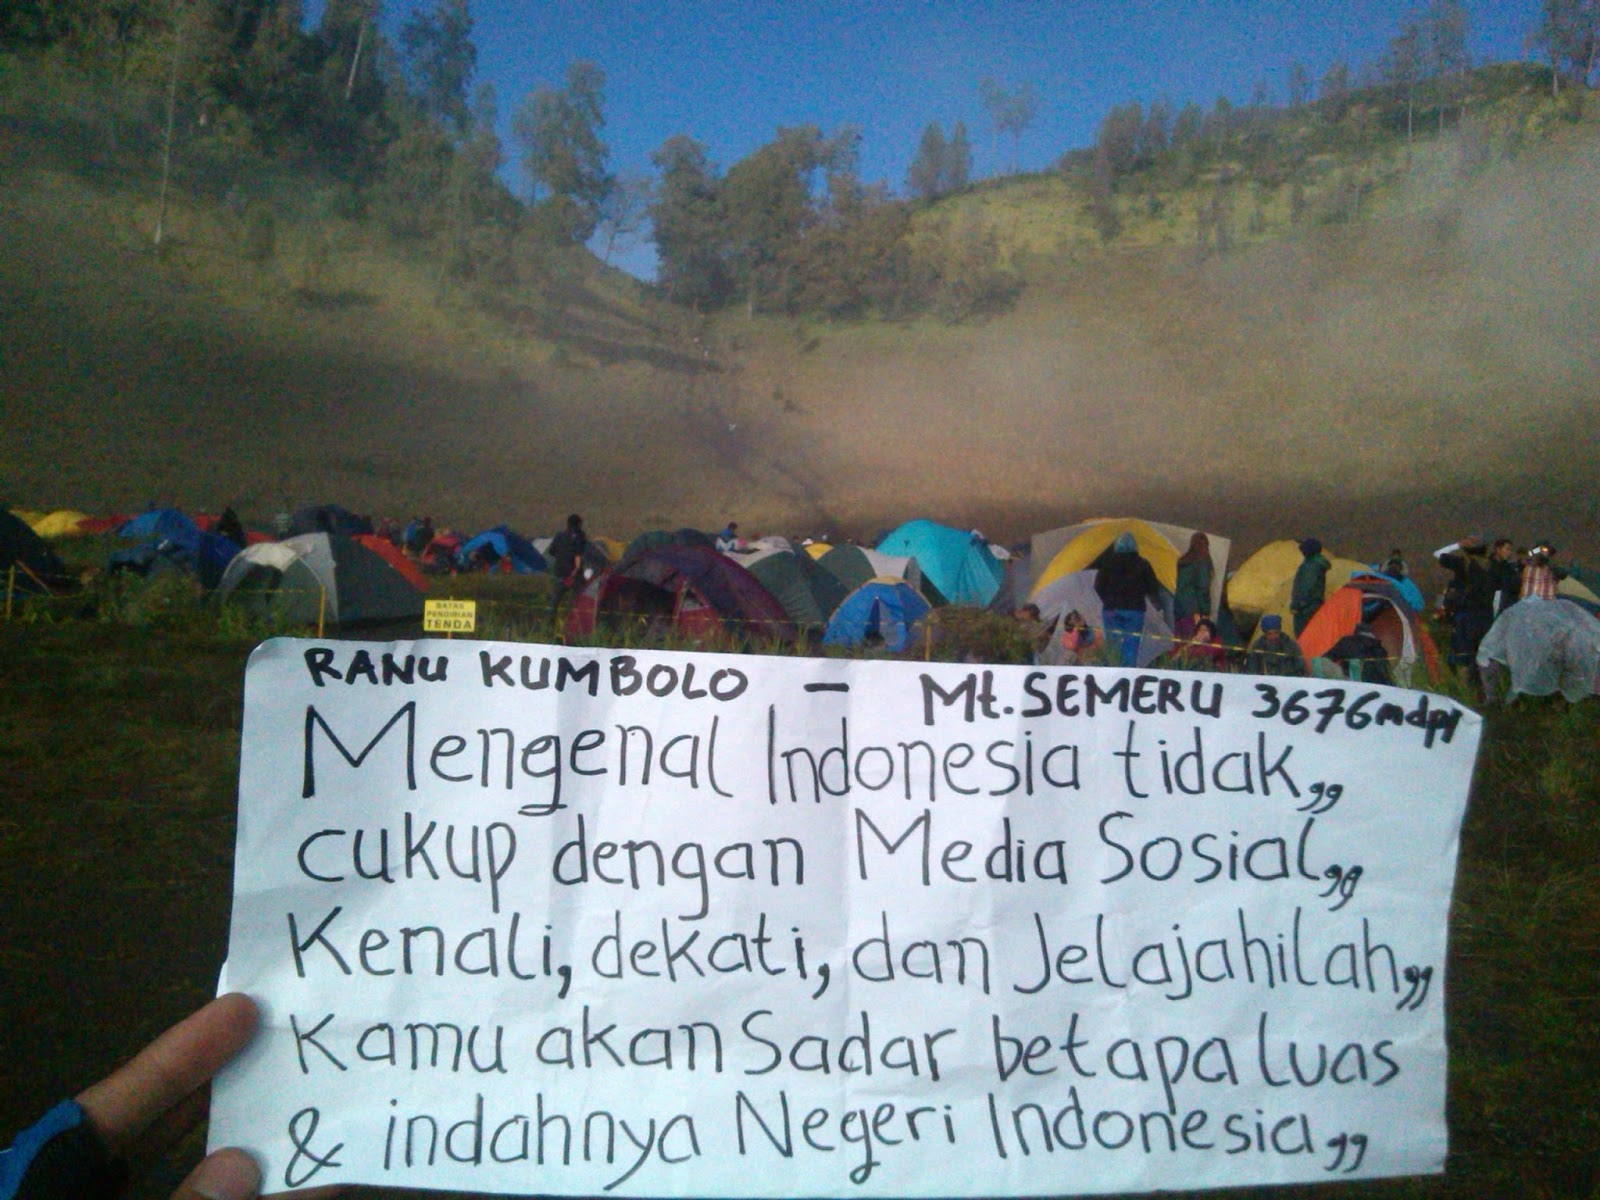 BATAS
PENDIRIAN
TENDA
RANU KUMBOLO - Mt. SEMERU 3676mdpl
Mengenal Indonesia tidak,,
cukup dengan Media Sosial,,
Kenali, dekati, dan Jelajahilah,,
Kamu akan Sadar betapa luas
& indahnya Negeri Indonesia,,